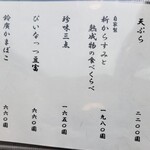 天ぷら 二二〇〇円
自家製
新からすみと
熟成物の食べくらべ 一九八〇円
珍味三点 一六五〇円
ぴいなっつ豆富 六六〇円
鈴廣かまぼこ 六六〇円